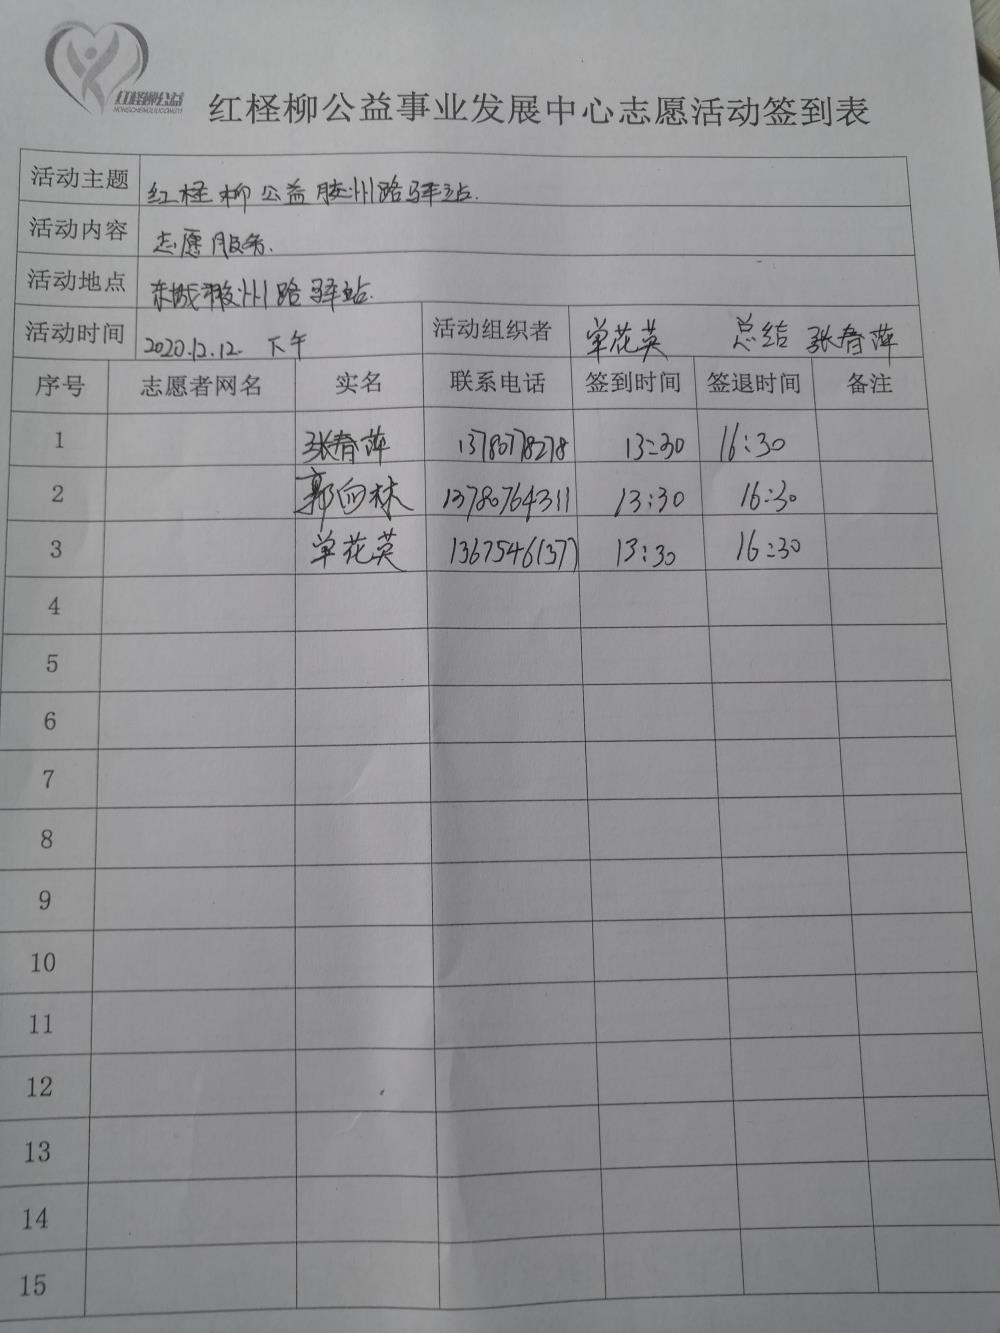 红柽柳公益
HONGCHENGLIUGONGYI
红柽柳公益事业发展中心志愿活动签到表
活动主题 红柽柳公益胶州路驿站.
活动内容 志愿服务.
活动地点 东城胶州路驿站.
活动时间 2020.12.12. 下午 活动组织者 单花英 总结 张春萍
序号 志愿者网名 实名 联系电话 签到时间 签退时间 备注
1 张春萍 13780778278 13:30 16:30
2 郭向林 13780764311 13:30 16:30
3 单花英 13675461371 13:30 16:30
4
5
6
7
8
9
10
11
12
13
14
15